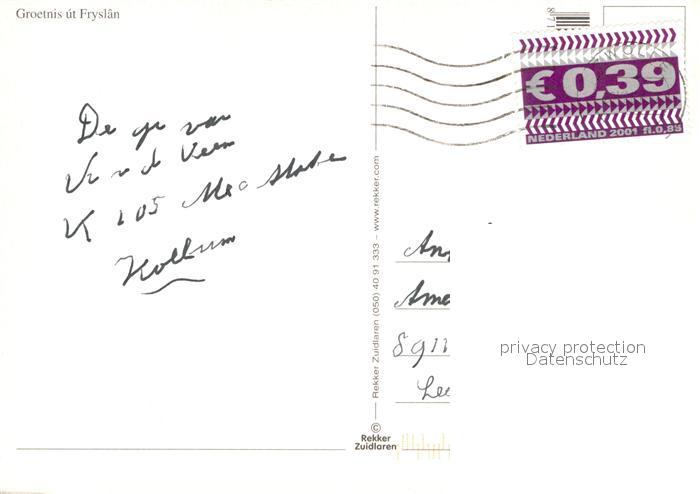 Groetnis út Fryslân
871
€ 0,39
NEDERLAND 2001 fl.0,85
De gr van
K 105
Kollum
Rekker Zuidlaren (050) 40 91 333 – www.rekker.com
©
Rekker
Zuidlaren
An
Ame
8911
Lee
privacy protection
Datenschutz